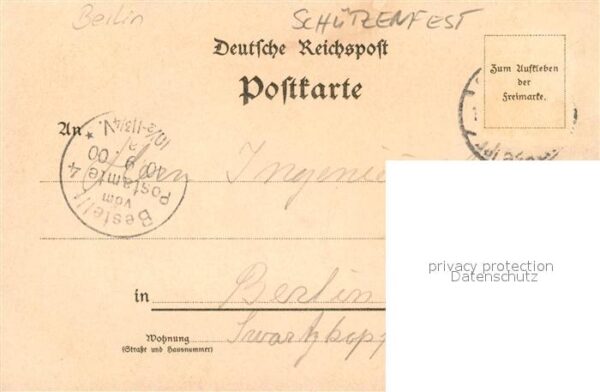 Berlin
SCHÜTZENFEST
Deutsche Reichspost
Postkarte
Zum Aufkleben
der
Freimarke.
An
Bestellt
vom
Postamte 4
10. 9. 00
10½-11¾ V.
Herrn Ingenie
in Berlin
Wohnung
(Straße und Hausnummer)
Swartzkopf
privacy protection
Datenschutz